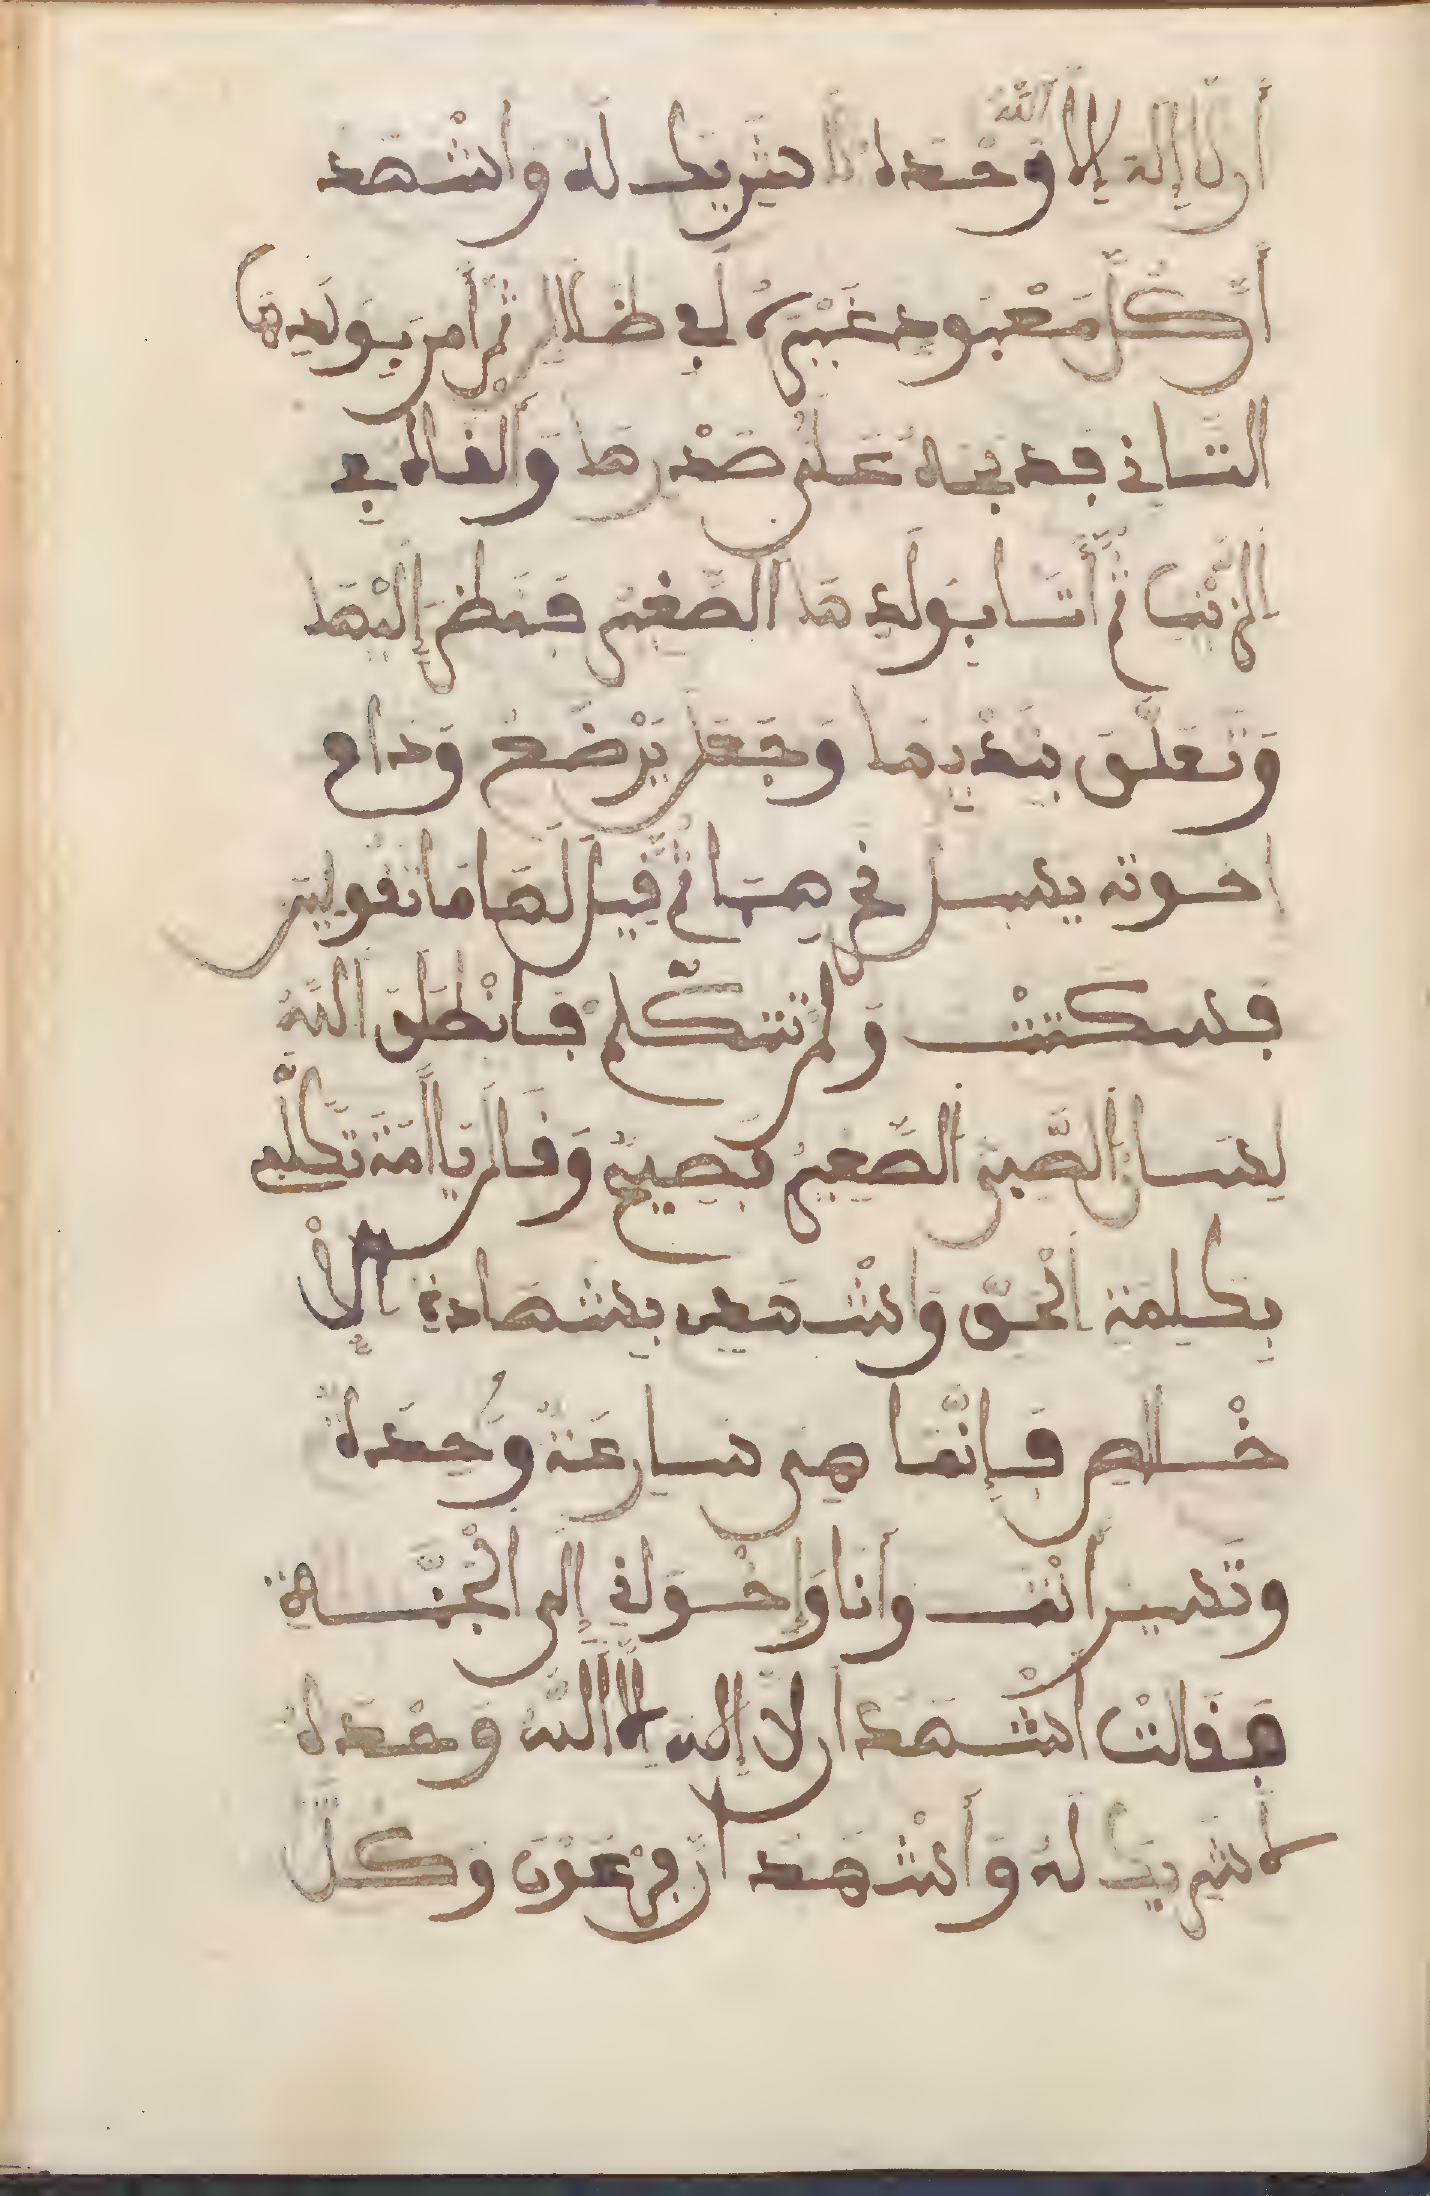 أن لا إله إلا الله وحده لا شريك له وأشهد
أن كل معبود غيره لفي ضلال ثم أمر بولدها
الثاني فذبحه على صدرها وألقاه في
الزيت ثم أتا بولدها الصغير فنظر إليها
وتعلق بثديها وجعل يرضع ودم
اخوته يسيل في ثم قيل لها ما تقولين
فسكتت ولم تتكلم فانطلق الله
لسان الصبي الصغير فصيح وقال يا أمة تكلمي
بكلمة الحق واشهدي بشهادة الإ
خلص فإنما هي ساعة وحدة
وتسير أنت وأنا وإخوتي إلى الجنة
فقالت اشهد ان لا إله إلا الله وحده
لا شريك له وأشهد أن فرعون وكل